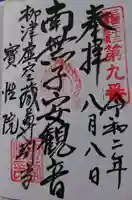 奉拝
八月八日
令和二年
南無子安観音
柳津虚空蔵尊別当
寳性院